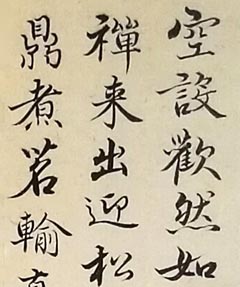 空設歡然如
禪来出迎松
鼎煮茗輸